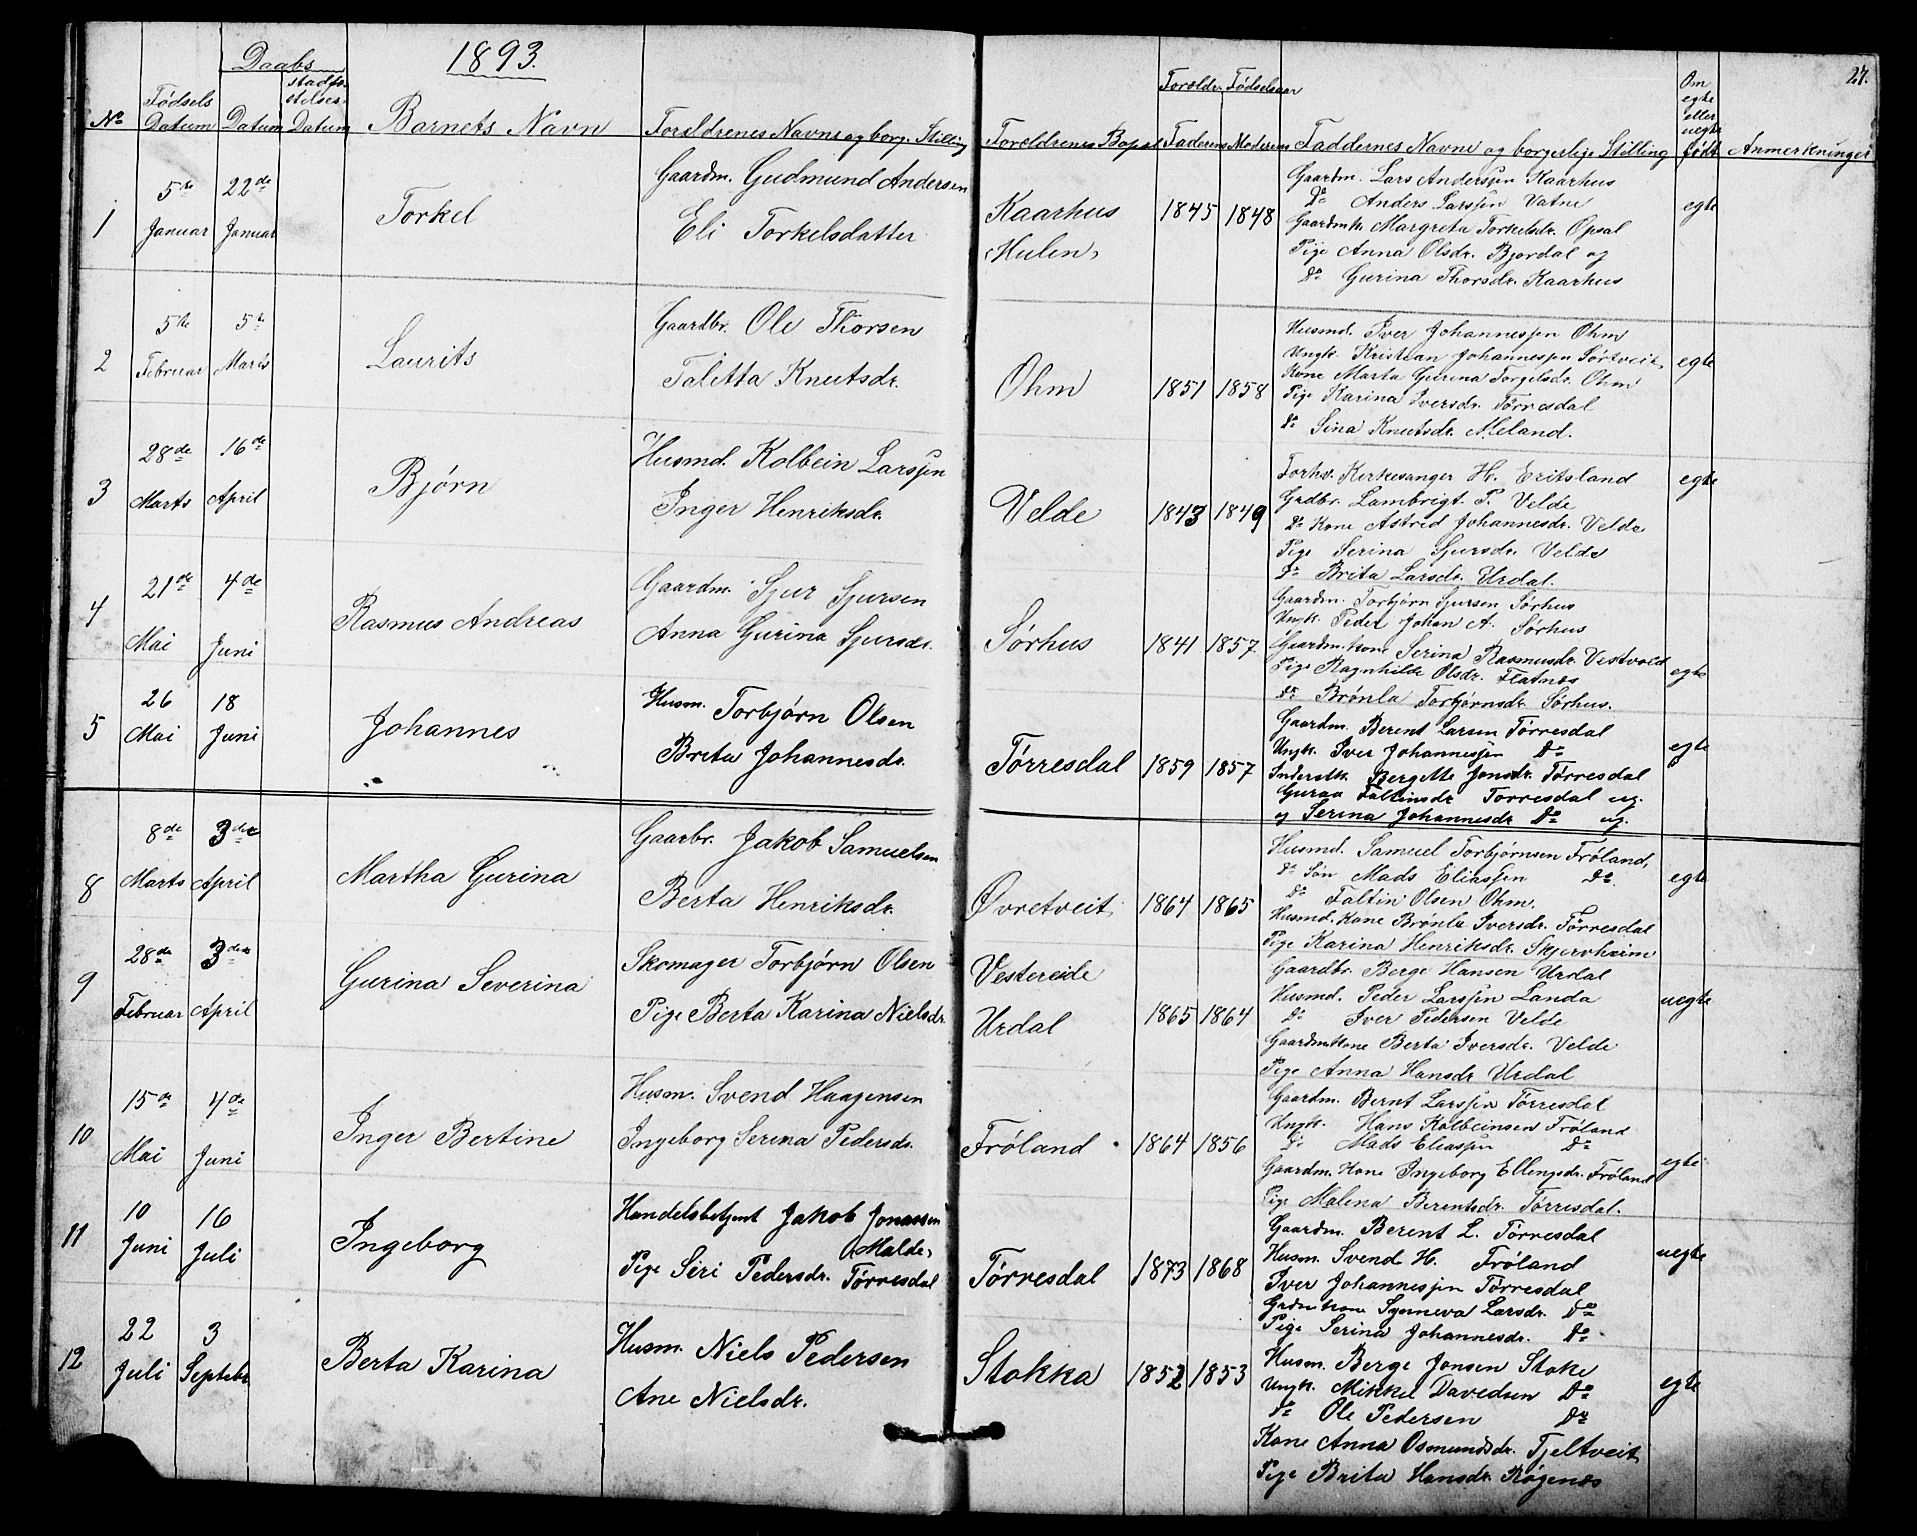 1893.
27.
Daabs
Forældr. Fødselsaar
No
Fødsels Datum
Datum
stadfæstelses-Datum
Barnets Navn
Forældrenes Navne og borg. Stilling
Forældrenes Bopæl
Faderens
Moderens
Faddernes Navne og borgerlige Stilling
Om egte eller uegte født
Anmerkninger
1
5te Januar
22de Januar
Torkel
Gaardm. Gudmund Andersen
Eli Torkelsdatter
Kaarhus
Hulen,
1845
1848
Gaardm. Lars Anderssen Kaarhus
Do Anders Larssen Vatne
Gaardmk. Margreta Torkelsdr. Opsal
Pige Anna Olsdr. Bjordal og
Do Gurina Thorsdr. Kaarhus
egte
2
5te Februar
5te Marts
Laurits
Gaardbr. Ole Thorsen
Taletta Knutsdr.
Ohm
1851
1858
Husmd. Iver Johannessen Ohm
Ungk. Kristian Johannessen Tørtveit,
Kone Marta Gurina Torgelsdr. Ohm
Pige Karina Iversdr. Tørresdal
Do Sina Knutsdr. Meland.
egte
3
28de Marts
16de April
Bjørn
Husmd. Kolbein Larssen
Inger Henriksdr.
Velde
1843
1849
Forhv. Kirkesanger H. Eritsland
Grdbr. Lambrigt P. Velde
Do Kone Astrid Johannesdr. Velde
Pige Serina Sjursdr. Velde
Do Brita Larsdr. Urdal.
egte
4
21de Mai
4de Juni
Rasmus Andreas
Gaardm. Sjur Sjursen
Anna Gurina Sjursdr.
Sørhus
1841
1857
Gaardm. Torbjørn Sjursen Sørhus
Ungk. Peder Johan A. Sørhus
Gaardm. Kone Serina Rasmusdr. Vestvold
Pige Ragnhilde Olsdr. Flatnæs
Do Brønla Torbjørnsdr. Sørhus.
egte
5
26 Mai
18 Juni
Johannes
Husm. Torbjørn Olsen
Brita Johannesdr.
Tørresdal
1859
1857
Gaardm. Berent Larsen Tørresdal
Ungk. Iver Johannessen Do
Inderstk. Bergitte Jonsdr. Tørresdal
Guraa Faltinsdr Tørresdal ug.
og Serina Johannesdr Do ug.
egte
8
8de Marts
3die April
Martha Gurina
Gaarbr. Jakob Samuelsen
Berta Henriksdr.
Øvretveit
1864
1865
Husmd. Samuel Torbjørnsen Frøland,
Do Søn Mads Eliassen Do
Do Faltin Olsen Ohm.
Husmd. Kone Brønla Iversdr. Tørresdal
Pige Karina Henriksdr. Skjervheim
egte
9
28de Februar
3die April
Gurina Severina
Skomager Torbjørn Olsen
Pige Berta Karina Nielsdr.
Vestereide
Urdal
1865
1864
Gaardbr. Berge Hansen Urdal
Husmd. Peder Larssen Landa
Do Iver Pedersen Velde
Gaardm.Kone Berta Iversdr. Velde
Pige Anna Hansdr Urdal
uegte
10
15de Mai
4de Juni
Inger Bertine
Husm. Svend Haagensen
Ingeborg Serina Pedersdr.
Frøland
1864
1856
Gaardm. Bernt Larssen Tørresdal
Ungk. Hans Kolbeinsen Frøland
Do Mads Eliassen Do
Gaardm. Kone Ingeborg Ellingsdr. Frøland
Pige Malena Berentsdr. Tørresdal.
egte
11
10 Juni
16 Juli
Ingeborg
Handelsbetjent Jakob Jonassen
(Malde,
Pige Siri Pedersdr. Tørresdal
Tørresdal
1873
1868
Gaardm. Berent L. Tørresdal
Husm. Svend H. Frøland
Iver Johannessen Tørresdal
Grdm Kone Synneva Larsdr. Do
Pige Serina Johannesdr. Do
uegte
12
22 Juli
3 Septebr
Berta Karina
Husm. Niels Pedersen
Ane Nielsdr.
Stokka
1852
1853
Husm. Berge Jonsen Stoke
Ungk. Mikkel Davedsen Do
Do Ole Pedersen Do
Kone Anna Osmundsdr. Tjeltveit
Pige Brita Hansdr. Røgenæs
egte